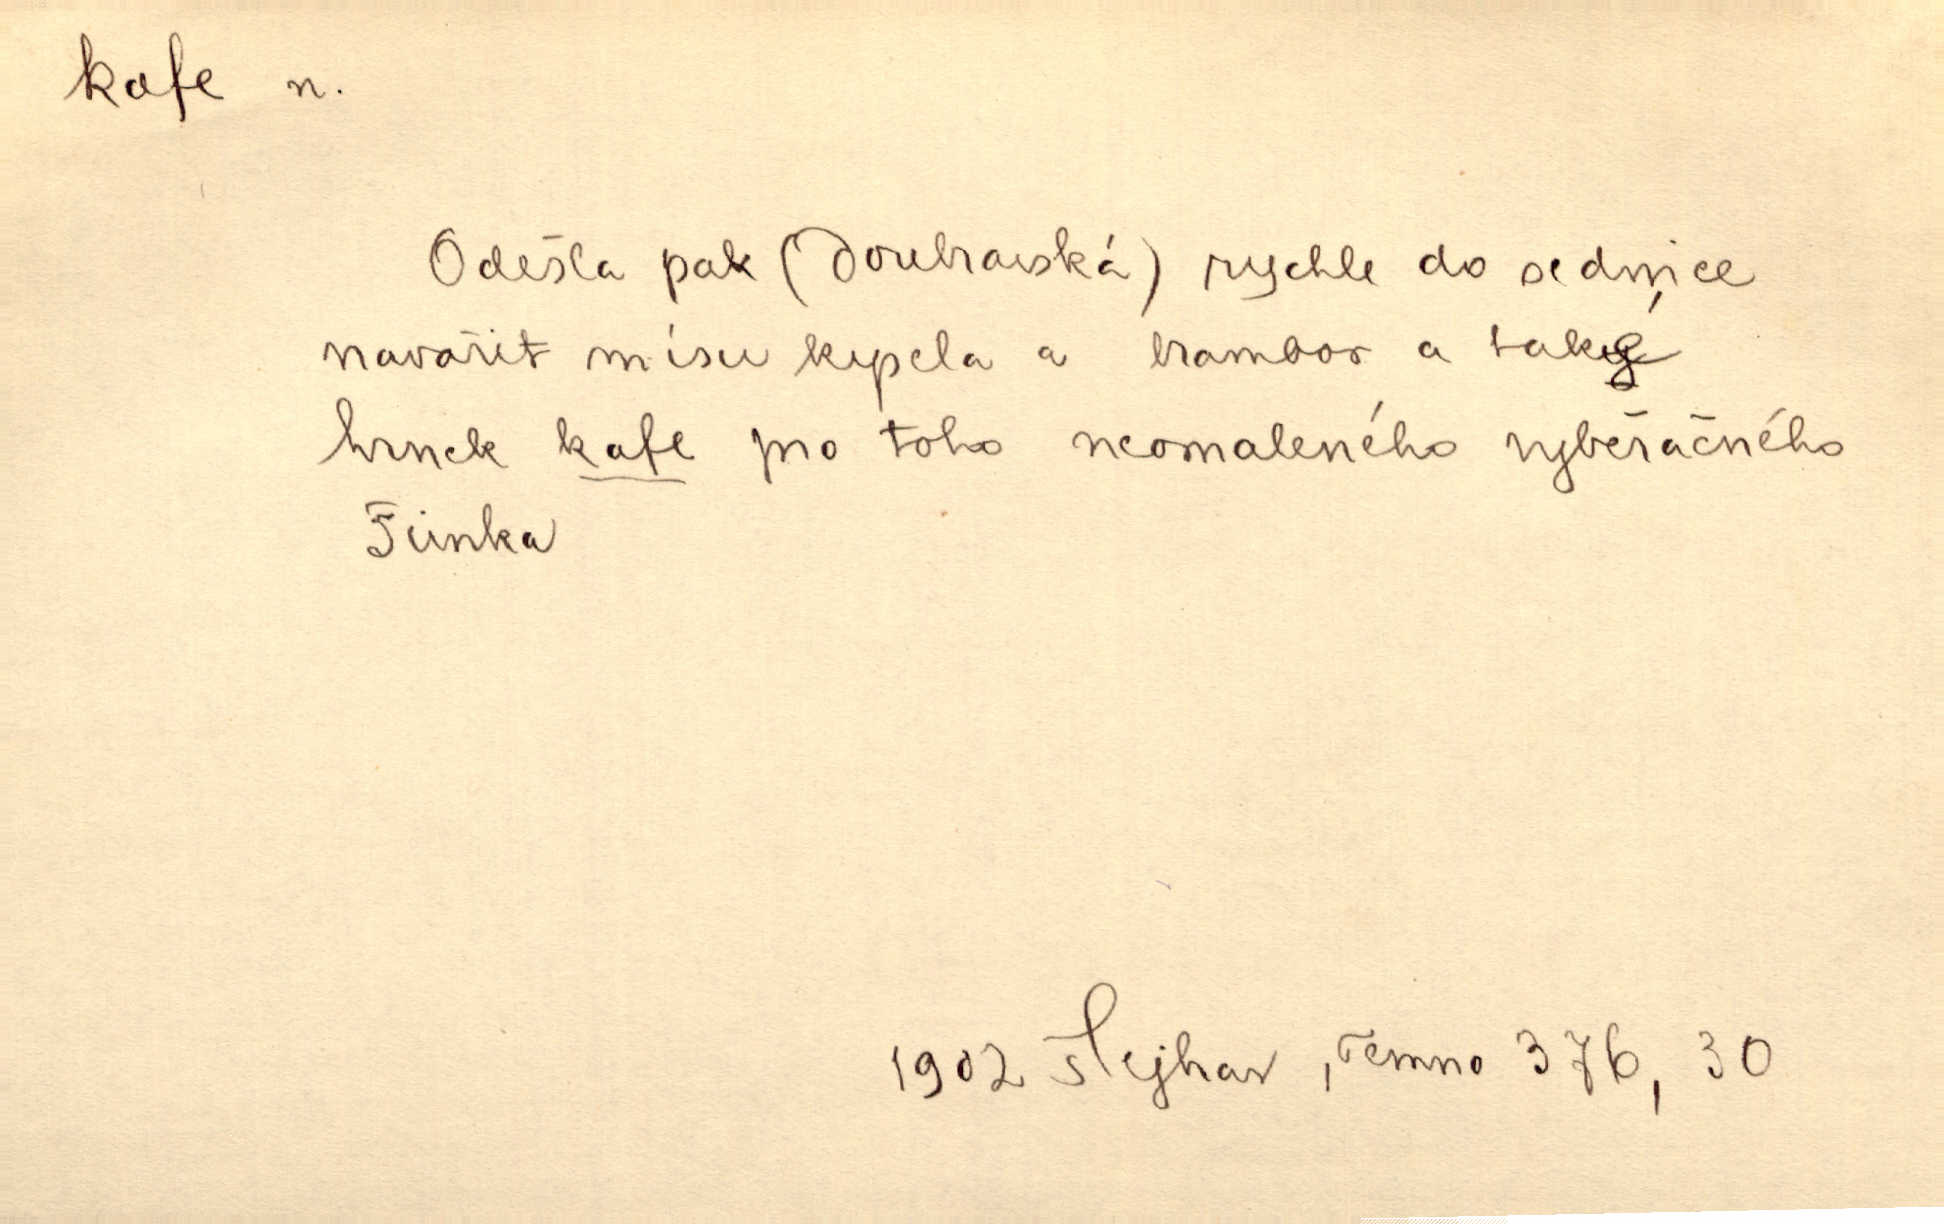 kafe n.
Odešla pak (Doubravská) rychle do sednice
navařit mísu kypela a brambor a také
hrnek kafe pro toho neomaleného vyběračného
Funka
1902 Šlejhar, Temno 376, 30